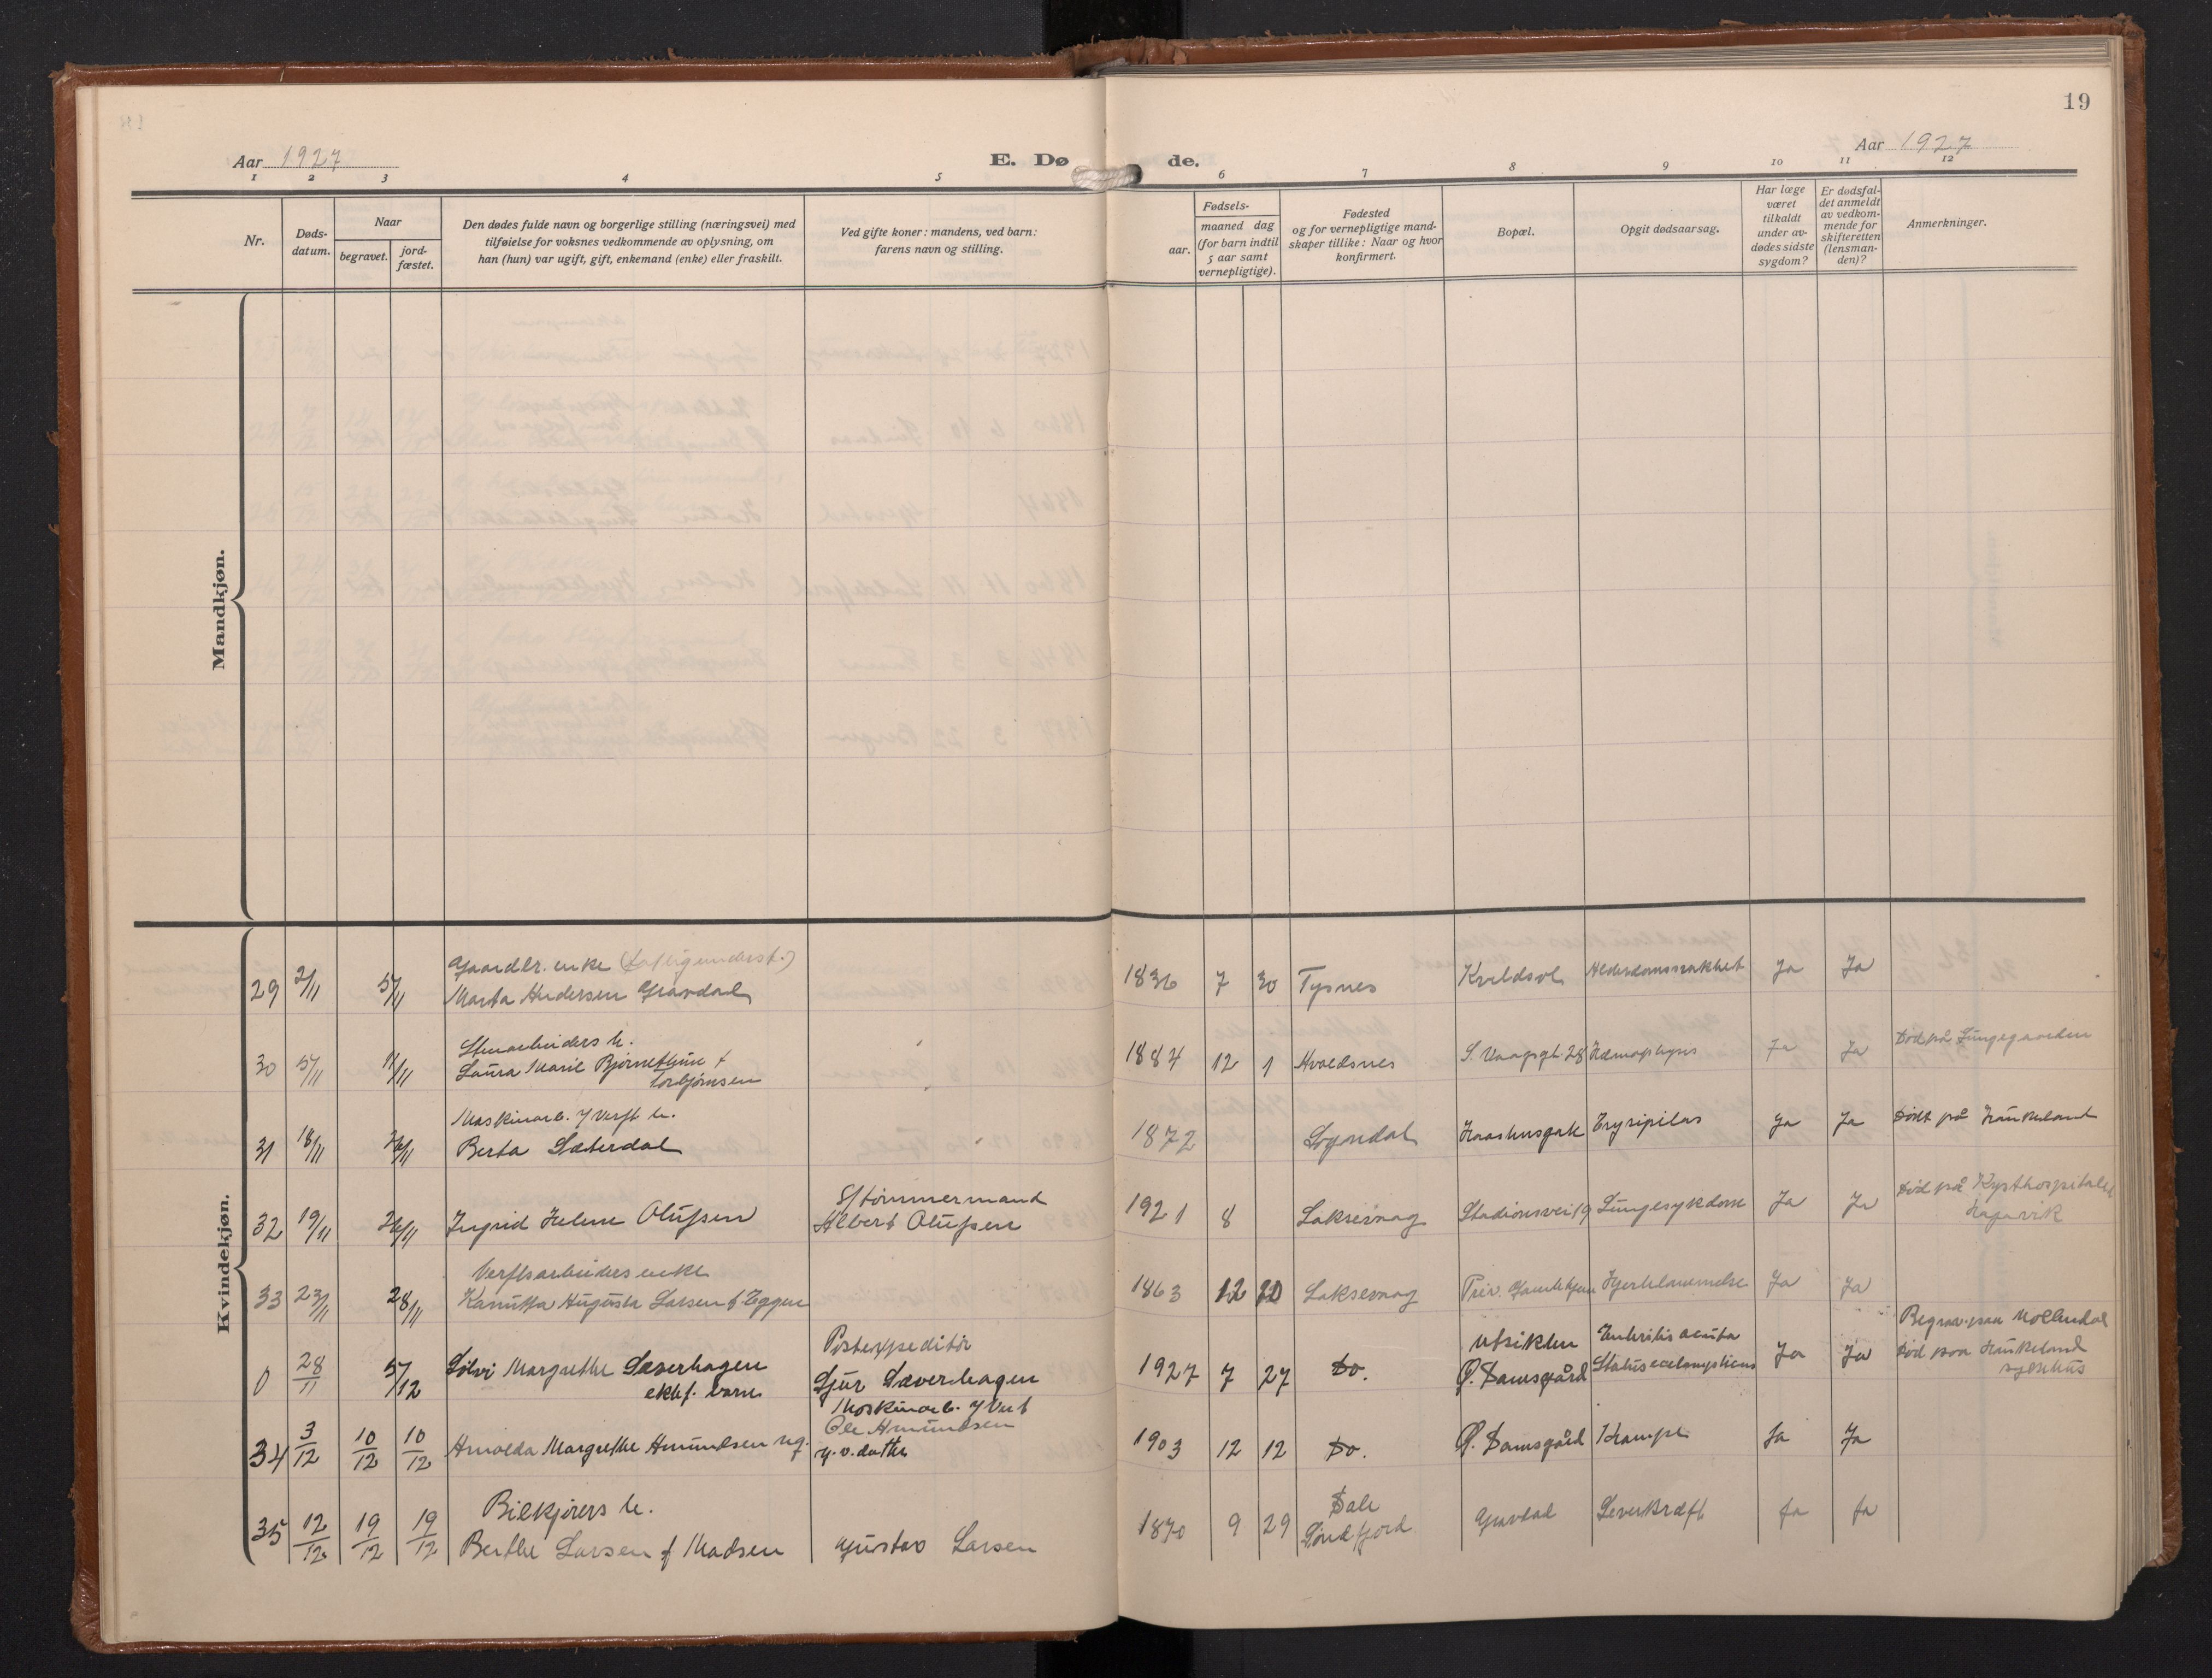 19
Aar 1927
E. Dø
de.
Aar 1927
1 2 3 4 5 6 7 8 9 10 11 12
Nr.
Døds-
datum.
Naar
begravet.
jord-
fæstet.
Den dødes fulde navn og borgerlige stilling (næringsvei) med
tilføielse for voksnes vedkommende av oplysning, om
han (hun) var ugift, gift, enkemand (enke) eller fraskilt.
Ved gifte koner: mandens, ved barn:
farens navn og stilling.
aar.
Fødsels-
maaned dag
(for barn indtil
5 aar samt
vernepligtige).
Fødested
og for vernepligtige mand-
skaper tillike: Naar og hvor
konfirmert.
Bopæl.
Opgit dødsaarsag.
Har læge
været
tilkaldt
under av-
dødes sidste
sygdom?
Er dødsfal-
det anmeldt
av vedkom-
mende for
skifteretten
(lensman-
den)?
Anmerkninger.
Mandkjøn.
Kvindekjøn.
Gaardbr. enke
29 2/11 5/11 Marta Andersen Gravdal 1836 7 30 Tysnes Ja Ja
Stenarbeiders h.
30 5/11 11/11 Laura Marie Bjørnethun f 1884 12 1 S. Vaagsgt. 28 Ja Ja Død på Lungegaarden
Torbjørnsen
Maskinarb. v/ Verft h.
31 18/11 26/11 Berta Sæterdal 1872 Sogndal Erysipilas Ja Ja Død på Haukeland
S/ tømmermand
32 19/11 26/11 Ingrid Helene Olufsen Albert Olufsen 1921 8 Laksevaag Stadionsvei 19 Lungesykdom Ja Ja Død på Kysthospitalet
Hagavik
Verftsarbeiders enke
33 23/11 28/11 Kanutta Augusta Larsen f. Eggen 1863 12 20 Laksevaag Priv. Gamlehjem Hjertelammelse Ja Ja
Postexpeditør
0 28/11 5/12 Sölvi Margrethe Sæverhagen Sjur Sæverhagen 1927 7 27 Do. Utsikten
ektef. barn Ø. Damsgård Enteritis acuta
Ja Ja Begrav. paa Møllendal
Død paa Haukeland
sykehus
Maskinarb. v/ Verft
Ole Amundsen
34 3/12 10/12 10/12 Arnolda Margrethe Amundsen ug. 1903 12 12 Do. Ø. Damsgård Krampe Ja Ja
Bilkjørers h.
35 12/12 19/12 19/12 Berthe Larsen f Madsen Gustav Larsen 1870 9 29 Dale
Søndfjord Gravdal Leverkræft Ja Ja